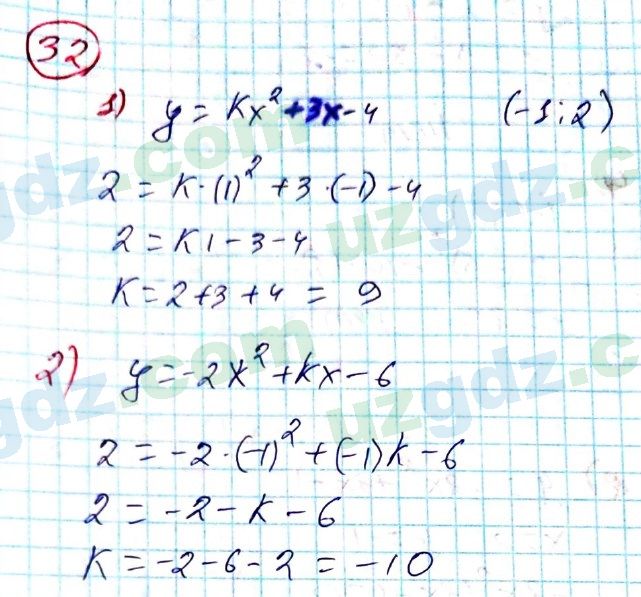 32
1) y = Kx² + 3x - 4 (-1; 2)
2 = K·(1)² + 3·(-1) - 4
2 = K1 - 3 - 4
K = 2 + 3 + 4 = 9
2) y = -2x² + Kx - 6
2 = -2·(-1)² + (-1)K - 6
2 = -2 - K - 6
K = -2 - 6 - 2 = -10
uzgdz.com
uzgdz.com